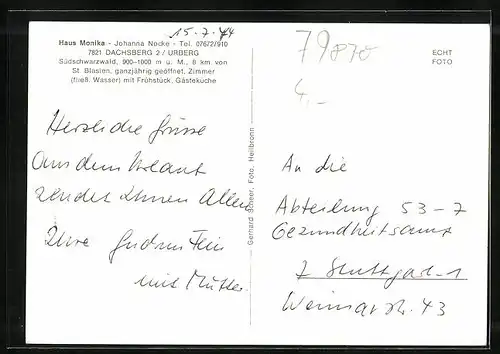 15.7.74
Haus Monika - Johanna Nocke - Tel. 07672/910
7821 DACHSBERG 2 / URBERG
Südschwarzwald, 900–1000 m ü. M., 8 km von
St. Blasien, ganzjährig geöffnet, Zimmer
(fließ. Wasser) mit Frühstück, Gästeküche
79870
4,-
ECHT
FOTO
Herzliche Grüsse
aus dem Urlaub
sendet Ihnen Allen
Ihre Gudrun Fein
mit Mutter.
Gerhard Scheer, Foto, Heilbronn
An die
Abteilung 53-7
Gezundheitsamt
7 Stuttgart-1
Weimarstr. 43